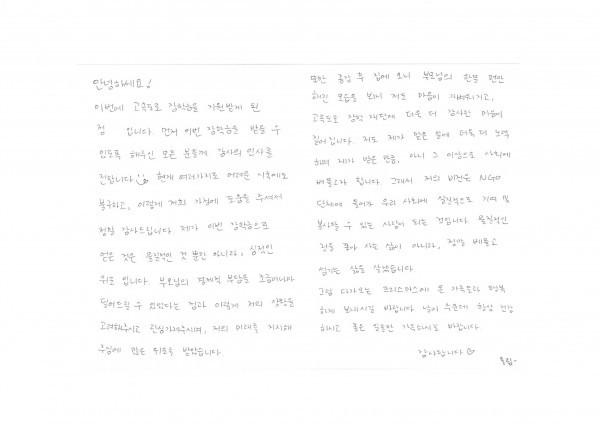 안녕하세요!
이번에 고촉도로 장학금을 지원받게 된
점 입니다. 먼저 이번 장학금을 받을 수
있도록 해주신 모든 분들께 감사의 인사를
전합니다 현재 여러가지로 어려운 시국에도
불구하고, 이렇게 저희 가정에 도움을 주셔서
정말 감사드립니다. 제가 이번 장학금으로
얻은 것은 물질적인 것 뿐만 아니라, 심적인
위로 입니다. 부모님의 경제적 부담을 조금이나마
덜어드릴 수 있었다는 점과 이렇게 저의 상황을
고려해주시고 관심가져주시며, 저의 미래를 지지해
주심에 많은 위로를 받았습니다.
또한 종강 후 집에 오니 부모님의 한결 편안
해진 모습을 보니 저도 마음이 가벼워지고,
장학 재단에 더욱 더 감사한 마음이
짙어집니다. 저도 제가 맡은 일에 더욱 더 노력
하며 제가 받은 만큼, 아니 그 이상으로 사회에
베풀고자 합니다. 그래서 저의 비전은 NGO
단체에 들어가 우리 사회에 실질적으로 기여 및
봉사할 수 있는 사람이 되는 것입니다. 물질적인
것을 쫓아 사는 삶이 아니라, 정말 베풀고
섬기는 삶을 살겠습니다.
그럼 다가오는 크리스마스에 온 가족들과 행복
하게 보내시길 바랍니다. 날이 추운데 항상 건강
하시고 좋은 일들만 가득하시길 바랍니다.
감사합니다
올림-